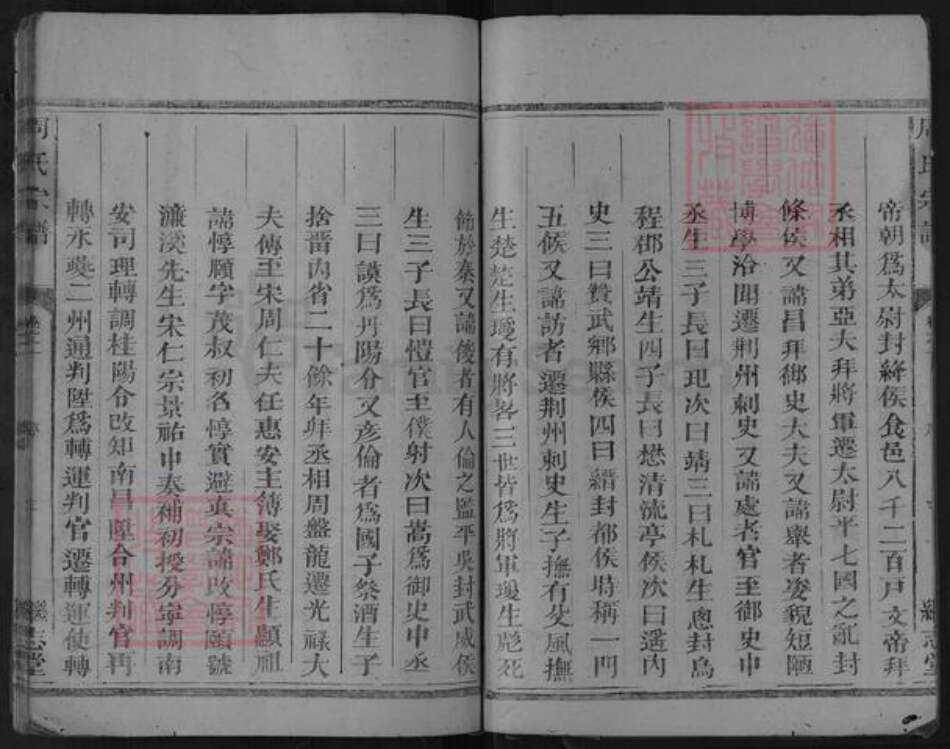 周氏宗譜
帝朝爲太尉封絳侯食邑八千二百戸文帝拜
丞相其弟亞夫拜將軍遷太尉平七國之亂封
條侯又諱昌拜御史大夫又諱舉者姿貌短陋
博學洽聞遷荆州刺史又諱處者官至御史中
丞生三子長曰玘次曰靖三曰札札生
程郡公靖生四子長曰懋清流亭侯次曰
史三曰贊武鄉縣侯四曰縉封都侯時稱一門
五候又諱訪者遷荆州刺史生子撫有父風撫
生楚楚生瓊有將畧三世皆爲將軍瓊生虓死
節於秦又諱俊者有人倫之鑒平吳封武威侯
生三子長曰愷官至僕射次曰嵩爲御史中丞
三曰謨爲丹陽令又彥倫者爲國子祭酒生子
捨晋内省二十餘年拜丞相周盤龍遷光祿大
夫傳至宋周仁夫任惠安主簿娶鄭氏生顯祖
諱惇頤字茂叔初名惇實避眞宗諱改惇頤號
濂溪先生宋仁宗景祐中奏補初授分寧調南
安司理轉調桂陽令改知南昌陞合州判官再
轉永夔二州通判陞爲轉運判官遷轉運使轉
周氏宗譜
志堂